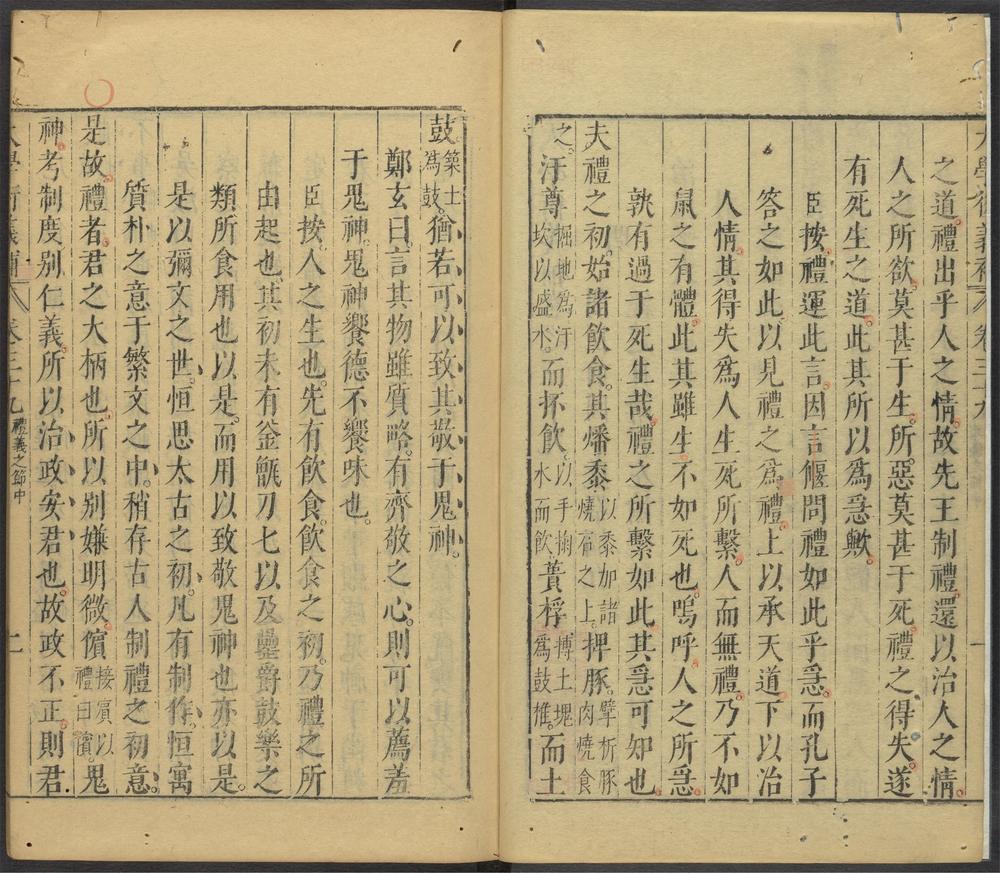 大學衍義補 卷三十九
之道禮出乎人之情故先王制禮還以治人之情
人之所欲莫甚于生所惡莫甚于死禮之得失遂
有死生之道此其所以爲急歟
臣按禮運此言因言偃問禮如此乎急而孔子
答之如此以見禮之爲禮上以承天道下以治
人情其得失爲人生死所繫人而無禮乃不如
鼠之有體此其雖生不如死也嗚呼人之所急
孰有過于死生哉禮之所繫如此其急可知也
夫禮之初始諸飲食其燔黍以黍加諸燒石之上捭豚擘析豚肉燒食
之汙尊掘地爲汙坎以盛水而抔飲以手掬水而飲蕢桴摶土塊爲鼓椎而土
鼓築土爲鼓猶若可以致其敬于鬼神
鄭玄曰言其物雖質略有齊敬之心則可以薦羞
于鬼神鬼神饗德不饗味也
臣按人之生也先有飲食飲食之初乃禮之所
由起也其初未有釜甑刀匕以及罍爵鼓樂之
類所食用也以是而用以致敬鬼神也亦以是
是以彌文之世恒思太古之初凡有制作恒寓
質朴之意于繁文之中稍存古人制禮之初意
是故禮者君之大柄也所以別嫌明微儐接賓以禮曰儐鬼
神考制度別仁義所以治政安君也故政不正則君
大學衍義補 卷三十九 禮義之節中 二